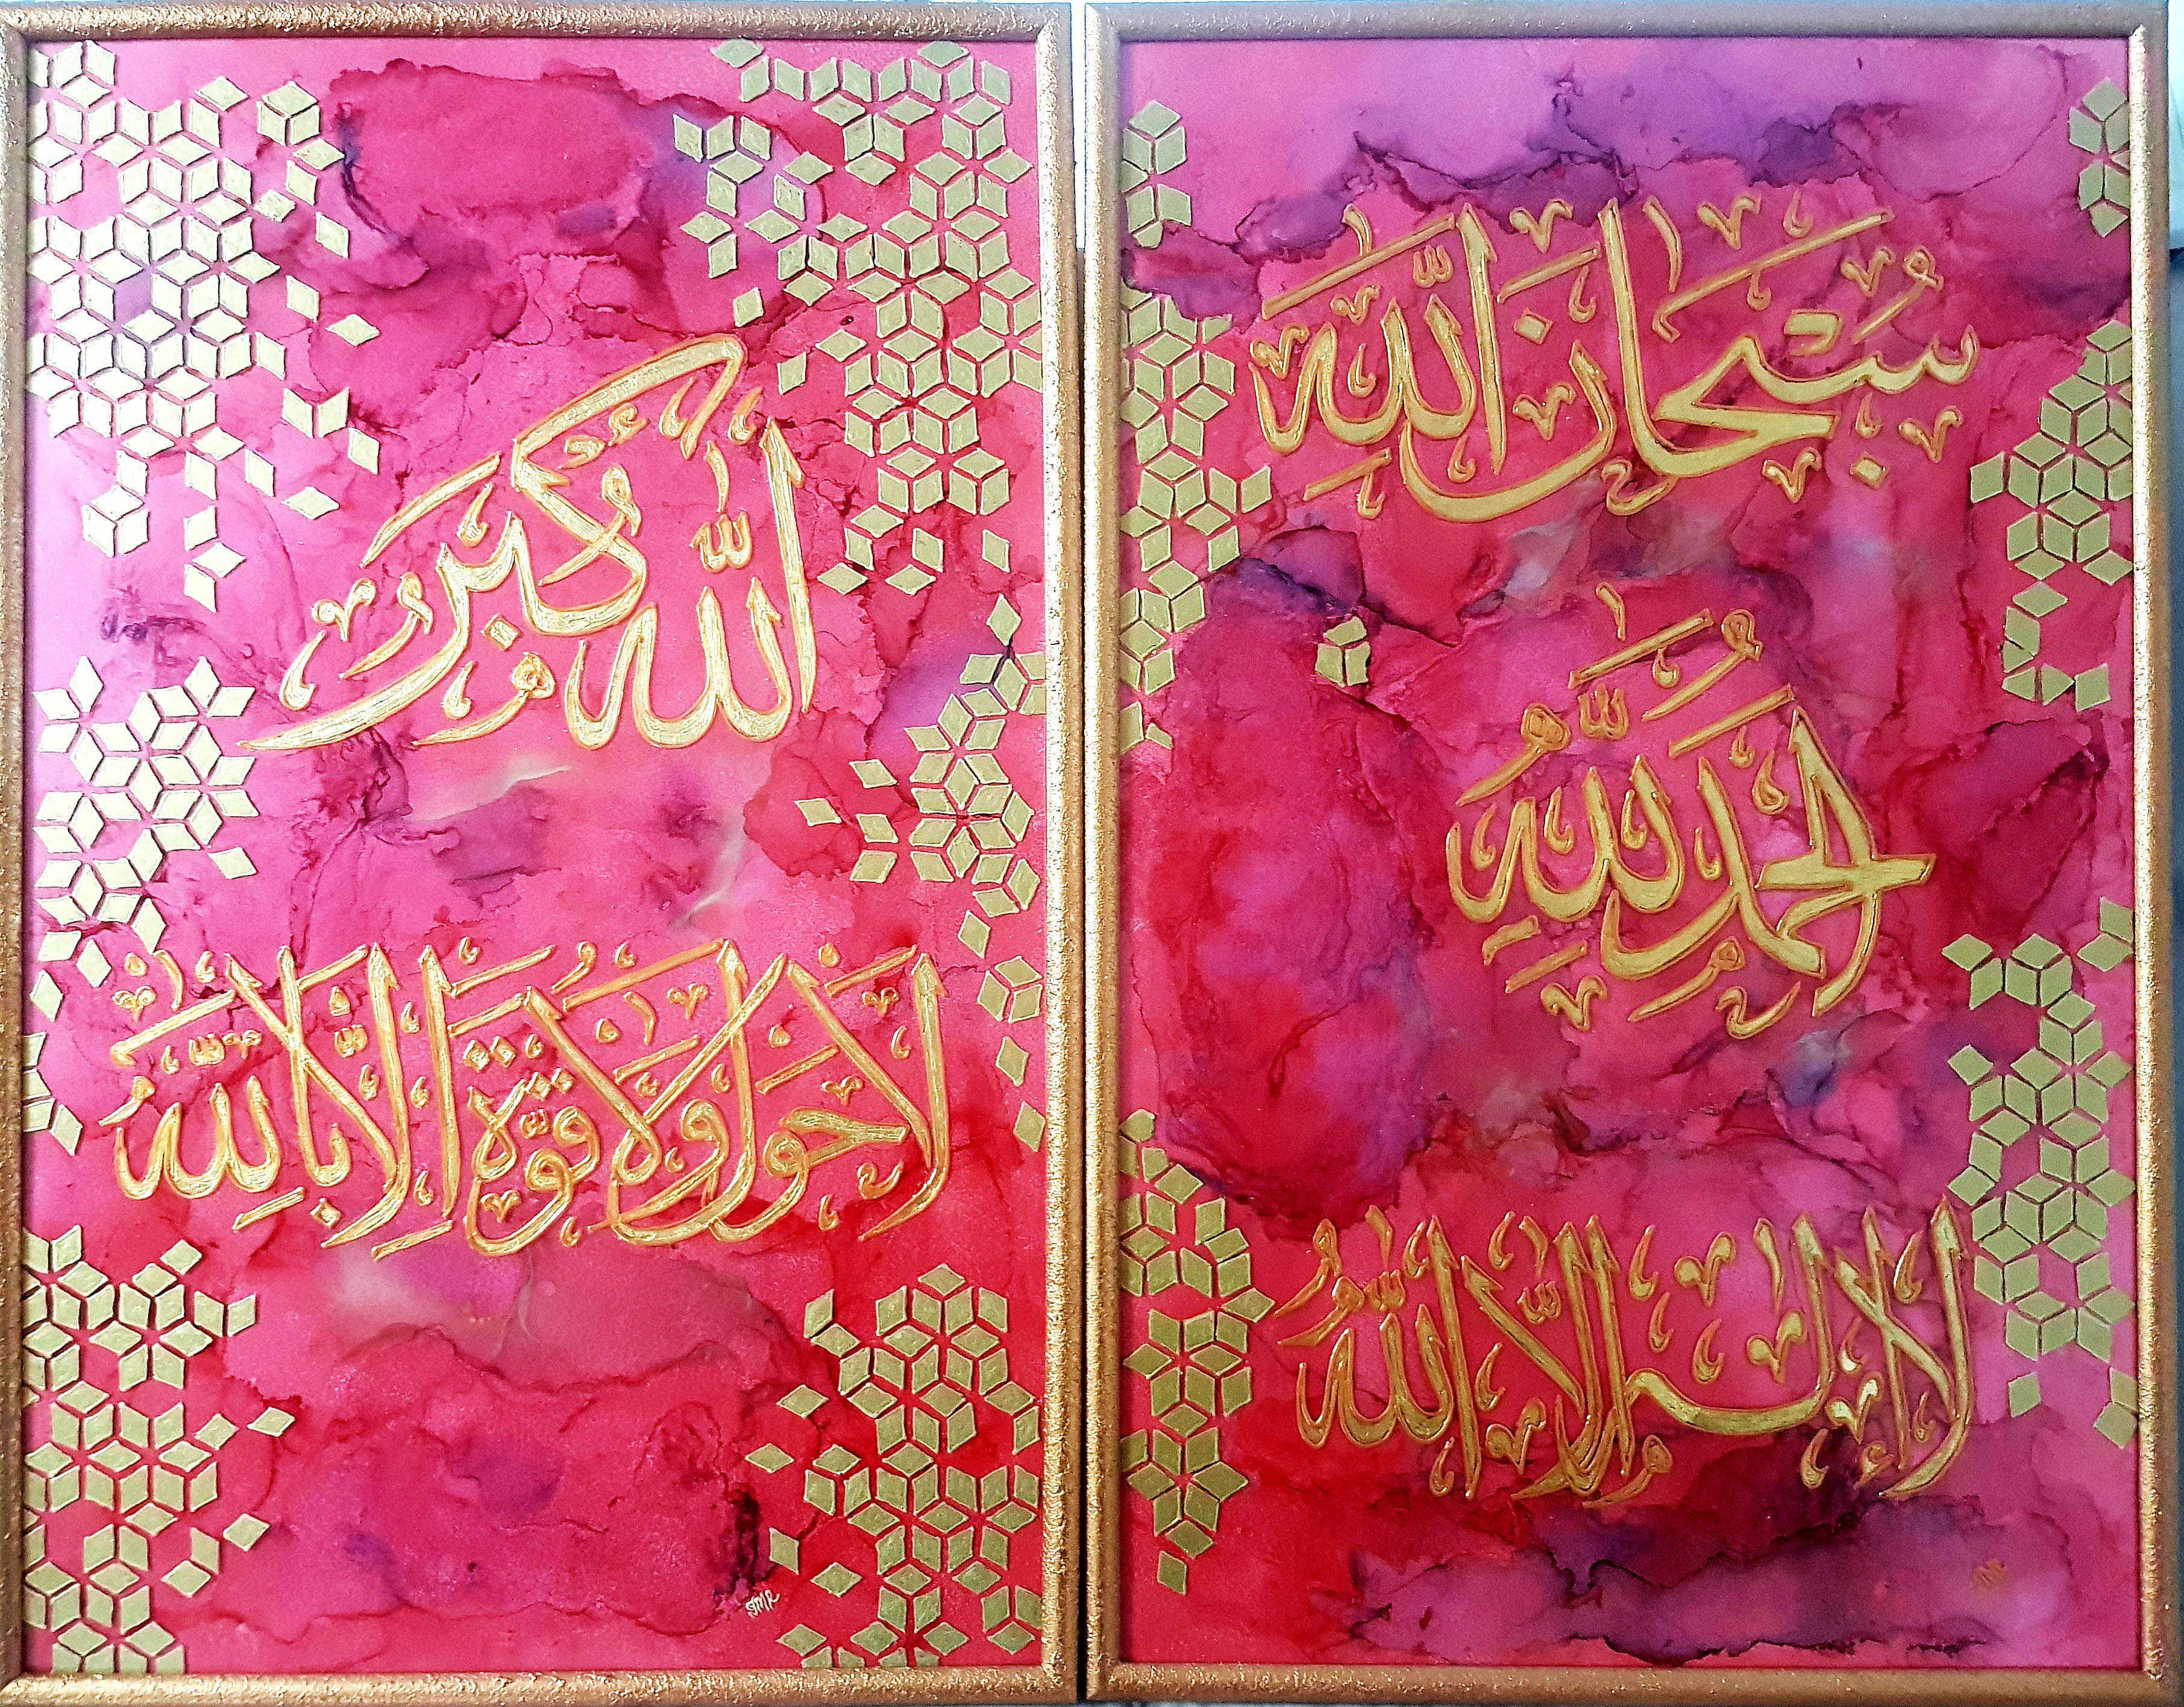 سُبْحَانَ اللّٰهِ
الْحَمْدُ لِلّٰهِ
لَا إِلٰهَ إِلَّا اللّٰهُ
اللّٰهُ أَكْبَر
لَا حَوْلَ وَلَا قُوَّةَ إِلَّا بِاللّٰهِ
SMR